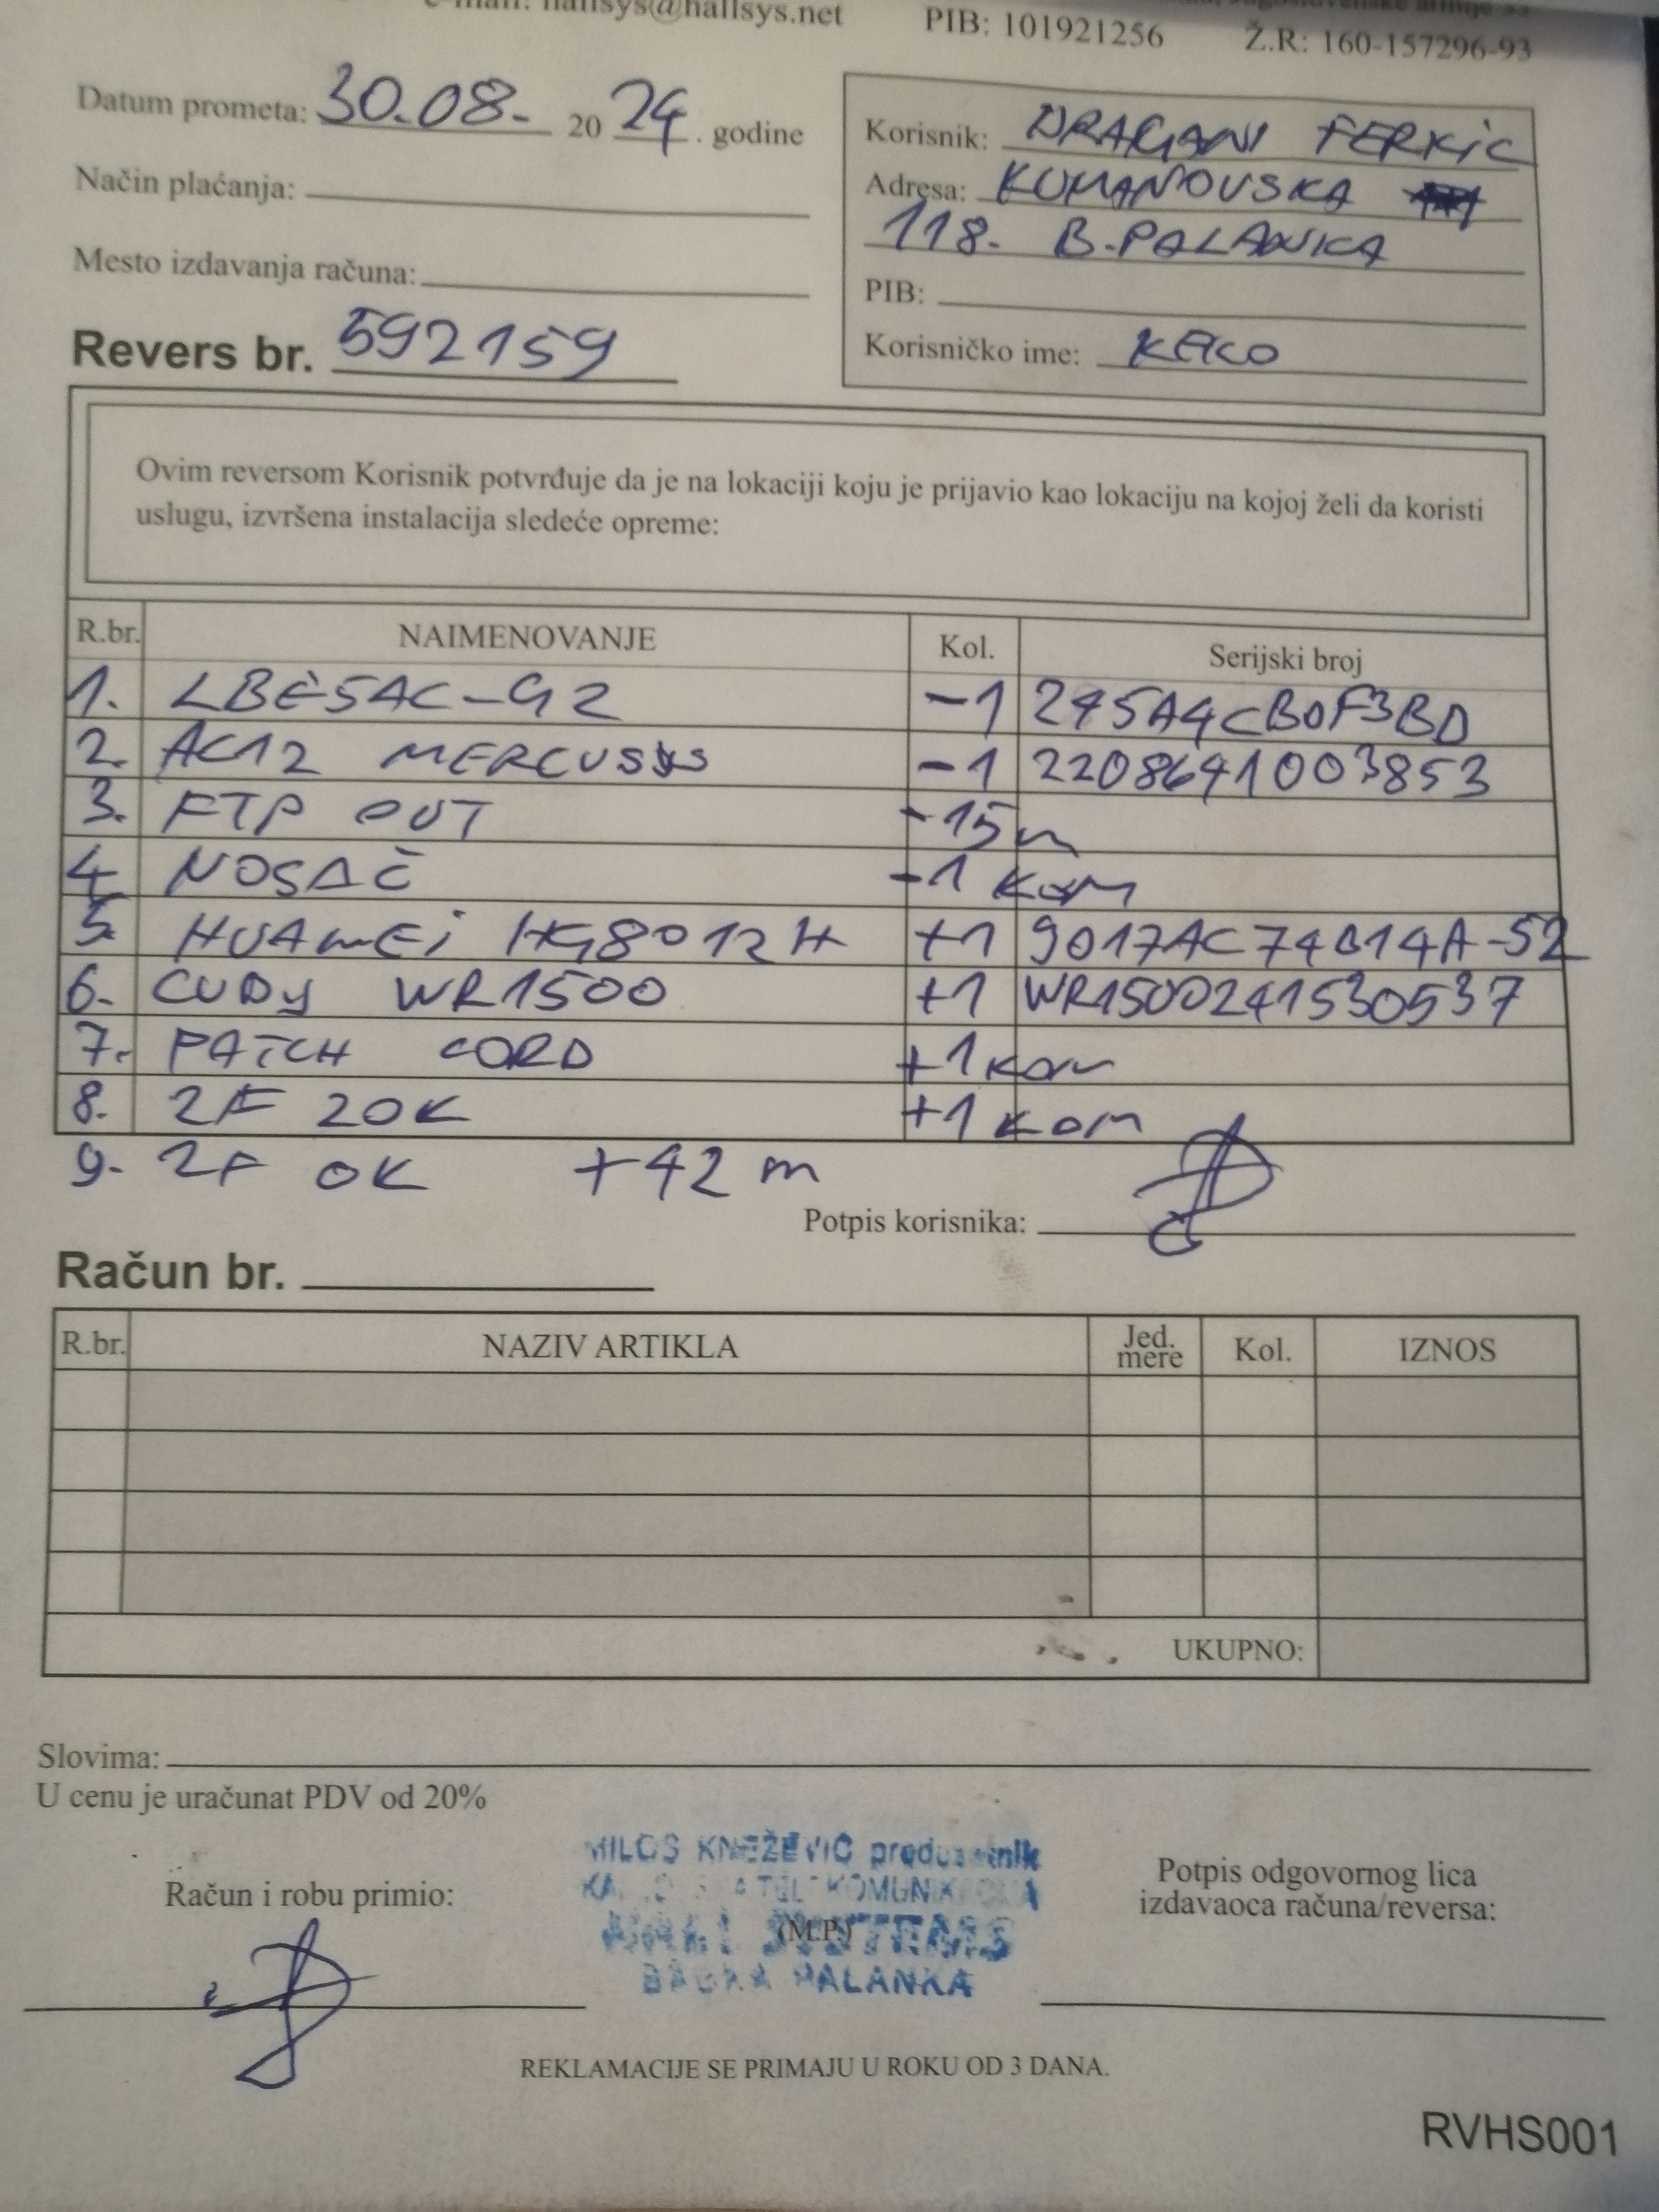 e-mail: hallsys@hallsys.net
PIB: 101921256 Ž.R: 160-157296-93
Datum prometa: 30.08. 2024. godine
Način plaćanja:
Mesto izdavanja računa:
Revers br. 592159
Korisnik: DRAGANI FERKIC
Adresa: KUMANOVSKA
118. B.PALANKA
PIB:
Korisničko ime: KECO
Ovim reversom Korisnik potvrđuje da je na lokaciji koju je prijavio kao lokaciju na kojoj želi da koristi
uslugu, izvršena instalacija sledeće opreme:
R.br. NAIMENOVANJE Kol. Serijski broj
1. LBE5AC-G2 -1 245A4CB0F3BD
2. AC12 MERCUSYS -1 2208641003853
3. FTP OUT -15m
4. NOSAČ -1 KOM
5. HUAWEi HG8012H +1 9017AC74B14A-52
6. CUDY WR1500 +1 WR1500241530537
7. PATCH CORD +1 KOM
8. 2F ZOK +1 KOM
9. 2F OK +42 m
Potpis korisnika:
Račun br.
R.br. NAZIV ARTIKLA Jed. mere Kol. IZNOS
UKUPNO:
Slovima:
U cenu je uračunat PDV od 20%
Račun i robu primio:
MILOŠ KNEŽEVIĆ preduzetnik
(M.P.)
BAČKA PALANKA
Potpis odgovornog lica
izdavaoca računa/reversa:
REKLAMACIJE SE PRIMAJU U ROKU OD 3 DANA.
RVHS001